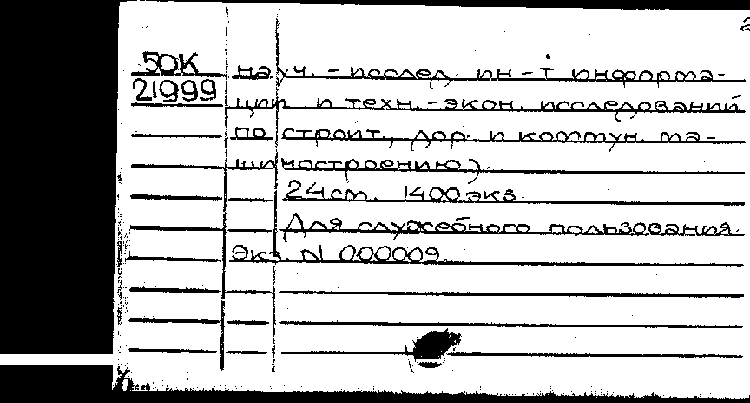 2
50К
21999
науч.-исслед. ин-т информа-
ции и техн.-экон. исследований
по строит., дор. и коммун. ма-
шиностроению.)
24 см. 1400 экз.
Для служебного пользования.
Экз. N 000009